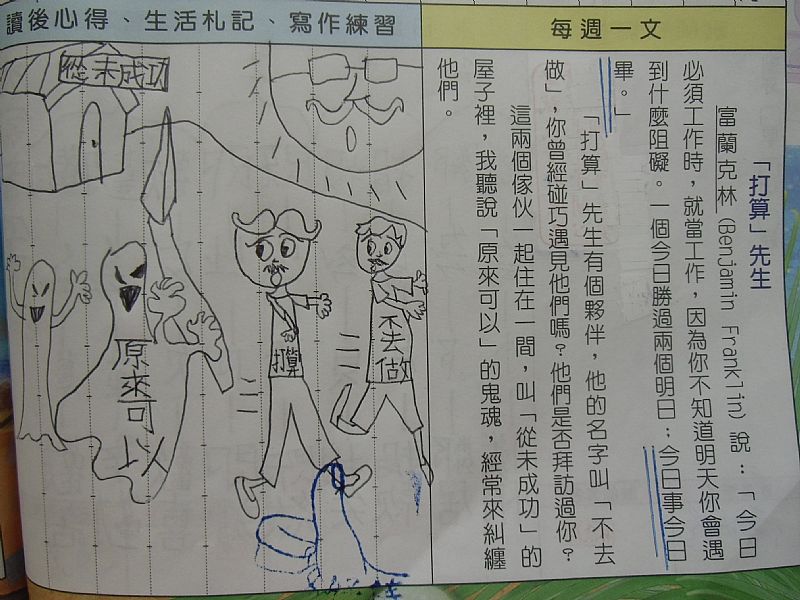 每週一文
「打算」先生
富蘭克林 (Benjamin Franklin) 說：「今日
必須工作時，就當工作，因為你不知道明天你會遇
到什麼阻礙。一個今日勝過兩個明日；今日事今日
畢。」
「打算」先生有個夥伴，他的名字叫「不去
做」，你曾經碰巧遇見他們嗎？他們是否拜訪過你？
這兩個傢伙一起住在一間，叫「從未成功」的
屋子裡，我聽說「原來可以」的鬼魂，經常來糾纏
他們。
讀後心得、生活札記、寫作練習
從未成功
不去做
打算
原來可以